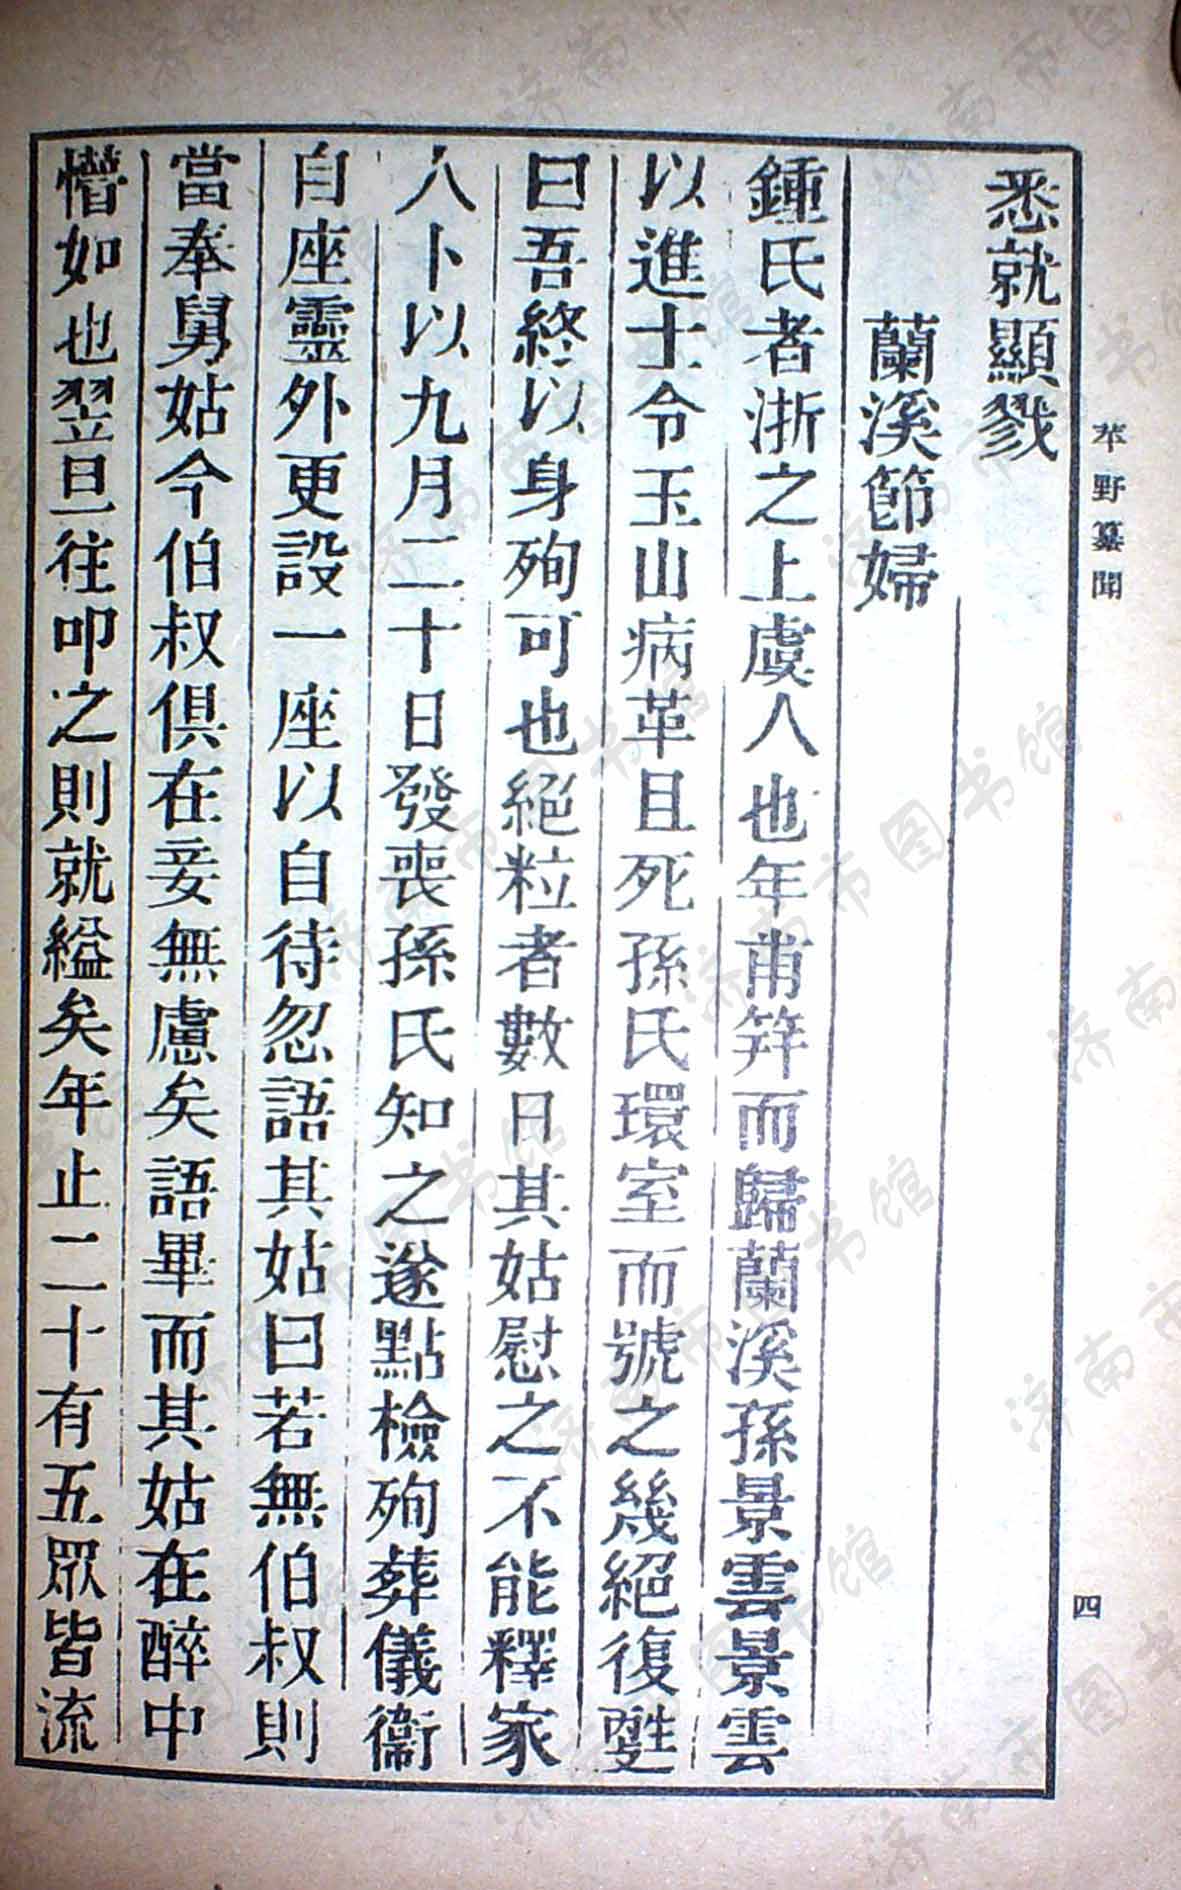 苹野纂聞
四
悉就顯戮
蘭溪節婦
鍾氏者浙之上虞人也年甫笄而歸蘭溪孫景雲景雲
以進士令玉山病革且死孫氏環室而號之幾絕復甦
曰吾終以身殉可也絕粒者數日其姑慰之不能釋家
人卜以九月二十日發喪孫氏知之遂點檢殉葬儀衞
自座靈外更設一座以自待忽語其姑曰若無伯叔則
當奉舅姑今伯叔俱在妾無慮矣語畢而其姑在醉中
懵如也翌旦往叩之則就縊矣年止二十有五眾皆流
济南市图书馆